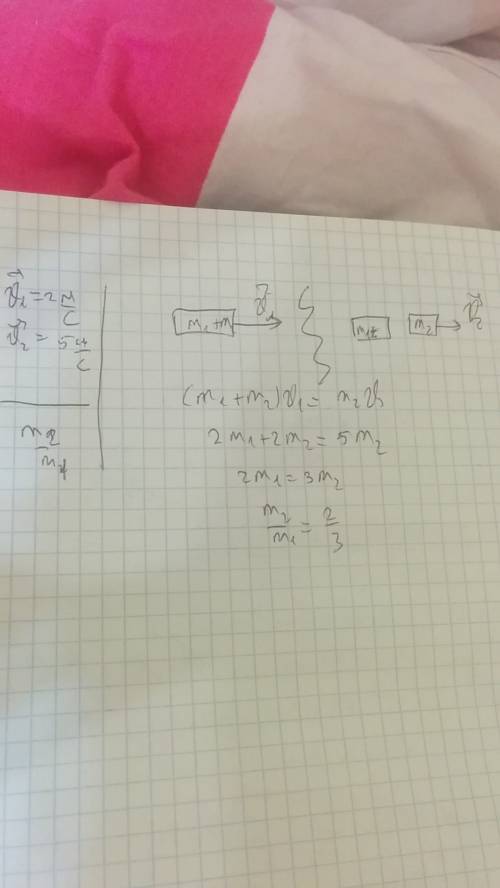 v⃗₁ = 2 м/с
v⃗₂ = 5 м/с
m₂/m₁
m₁+m v⃗₁
m₁ m₂ v⃗₂
(m₁+m₂)v₁ = m₂v₂
2m₁+2m₂ = 5m₂
2m₁ = 3m₂
m₂/m₁ = 2/3